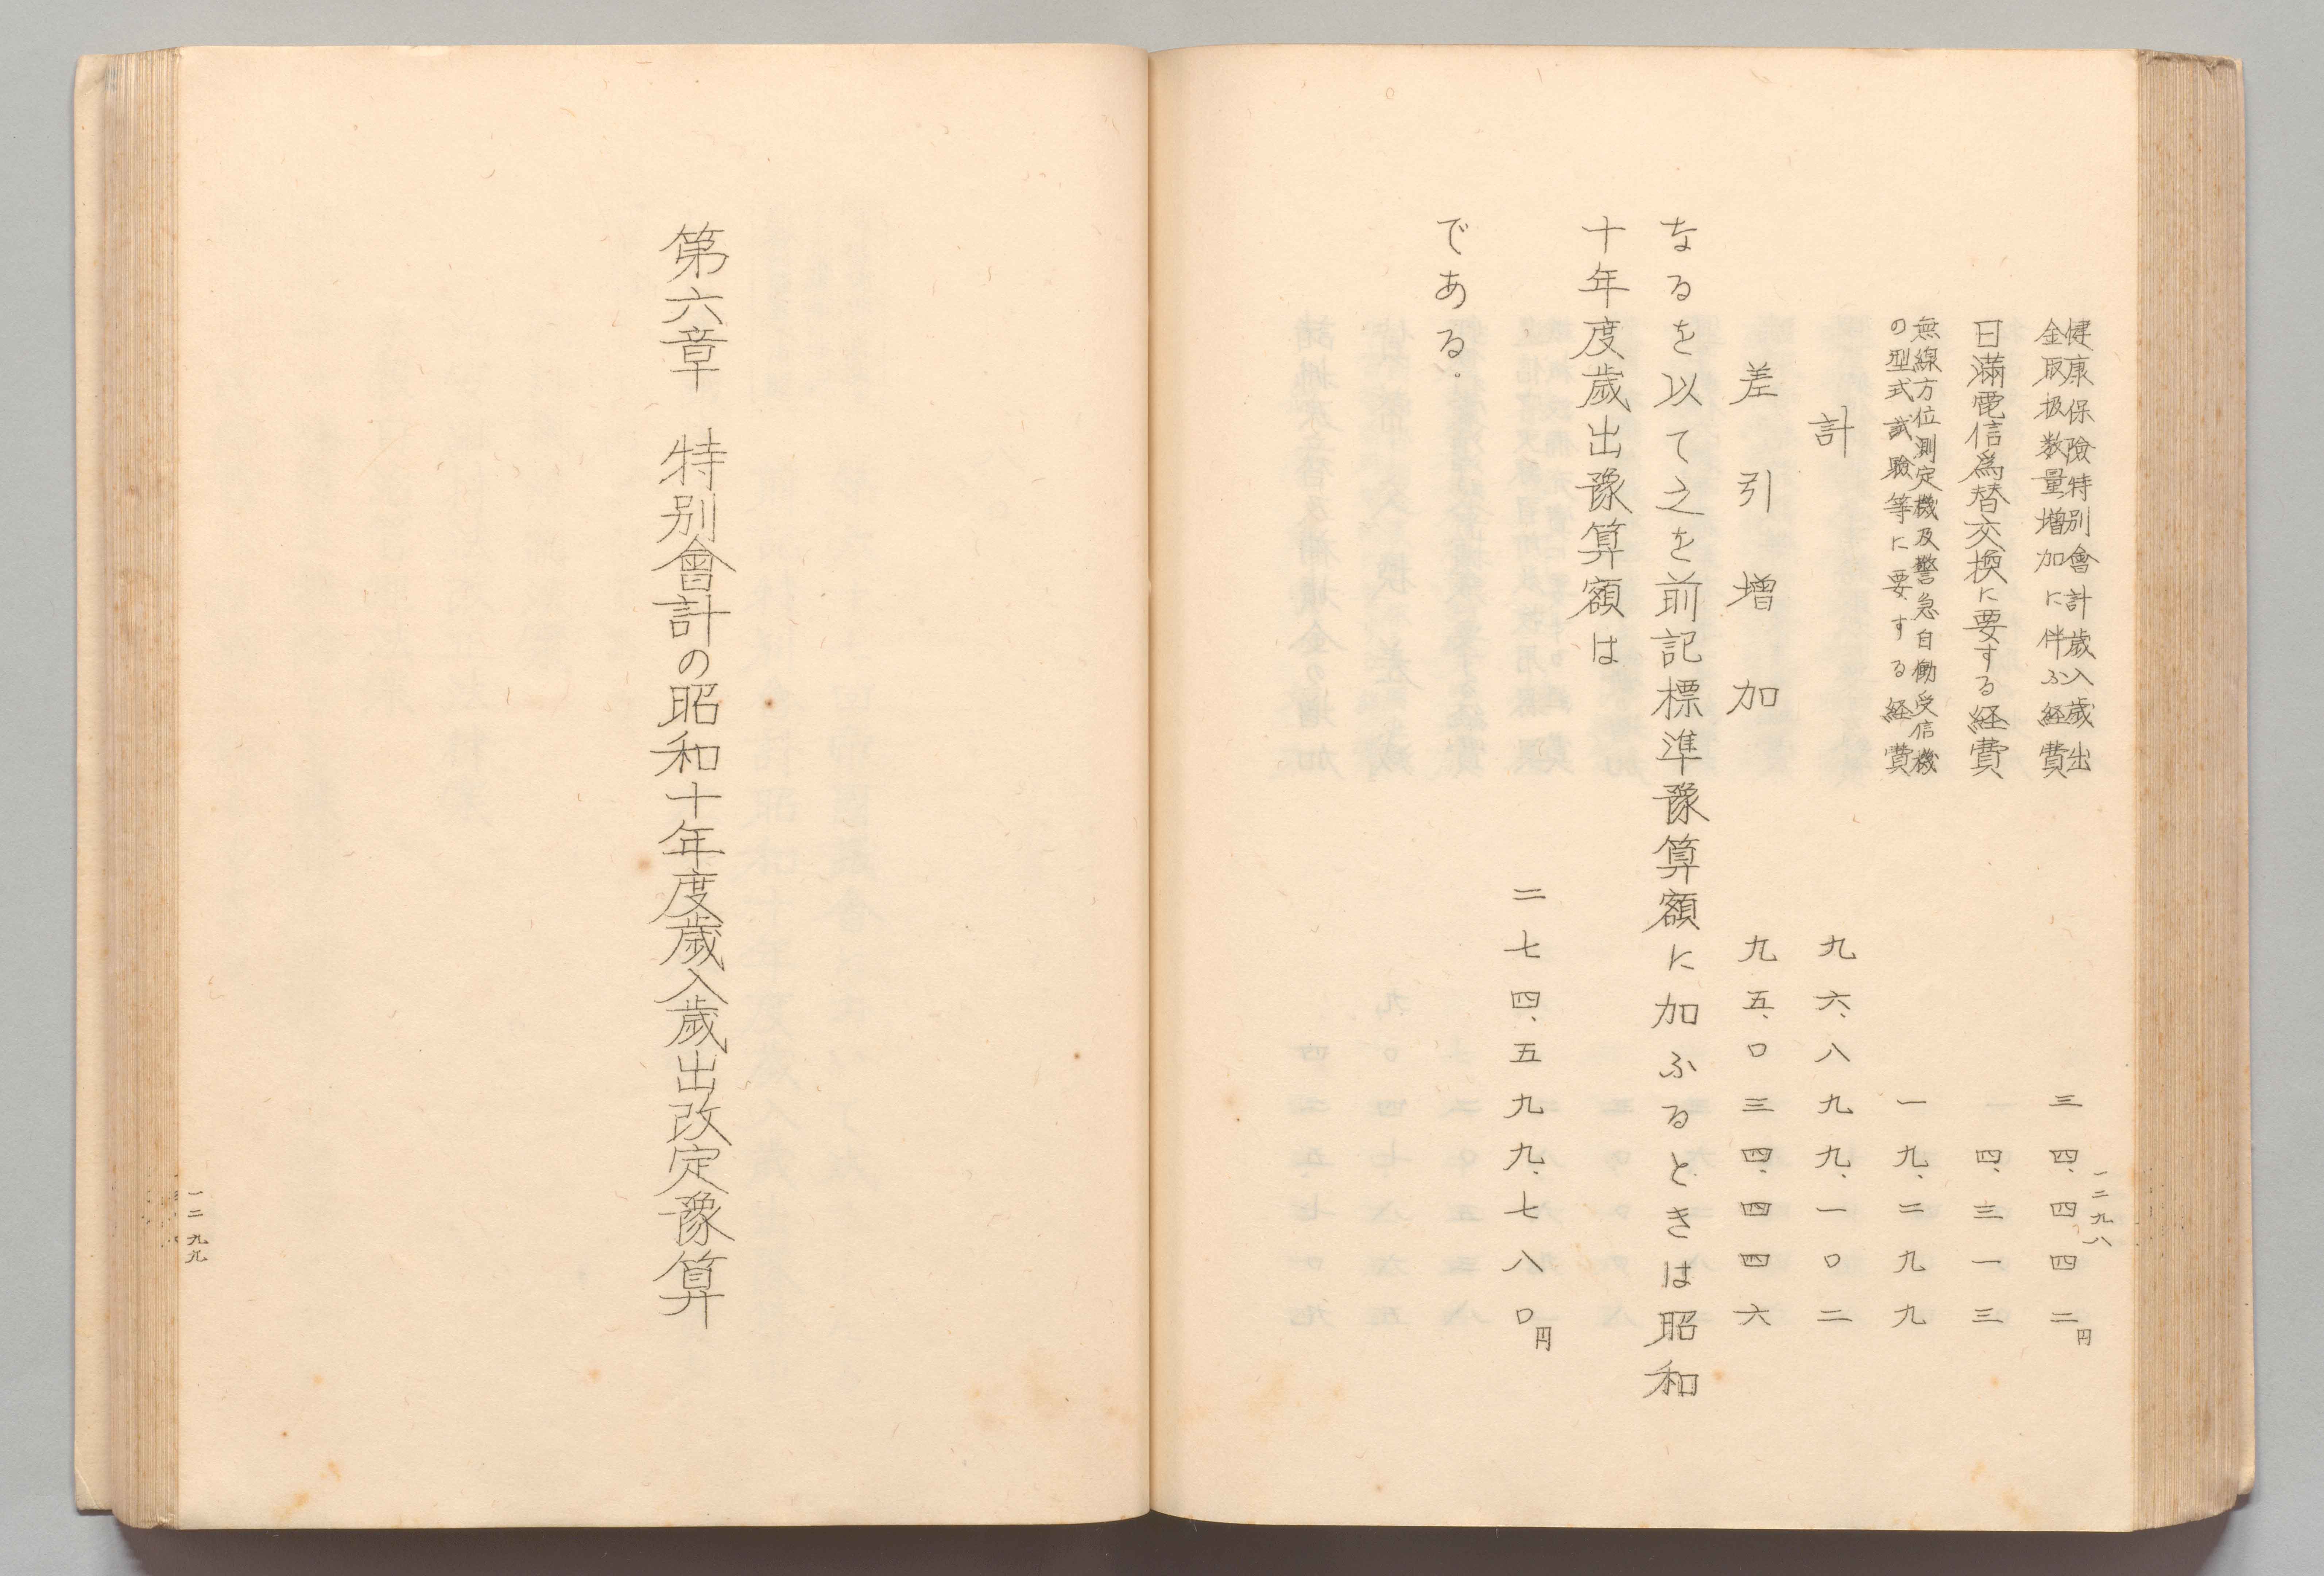 健康保險特別會計歳入歳出
金取扱数量増加に伴ふ経費 三四、四四二円
日滿電信爲替交換に要する経費 一四、三一三
無線方位測定機及警急自働受信機
の型式試驗等に要する経費 一九、二九九
計 九六、八九九、一〇二
差引増加 九五、〇三四、四四六
なるを以て之を前記標準豫算額に加ふるときは昭和
十年度歳出豫算額は
二七四、五九九、七八〇円
である。
一二九八
第六章 特別會計の昭和十年度歳入歳出改定豫算
一二九九